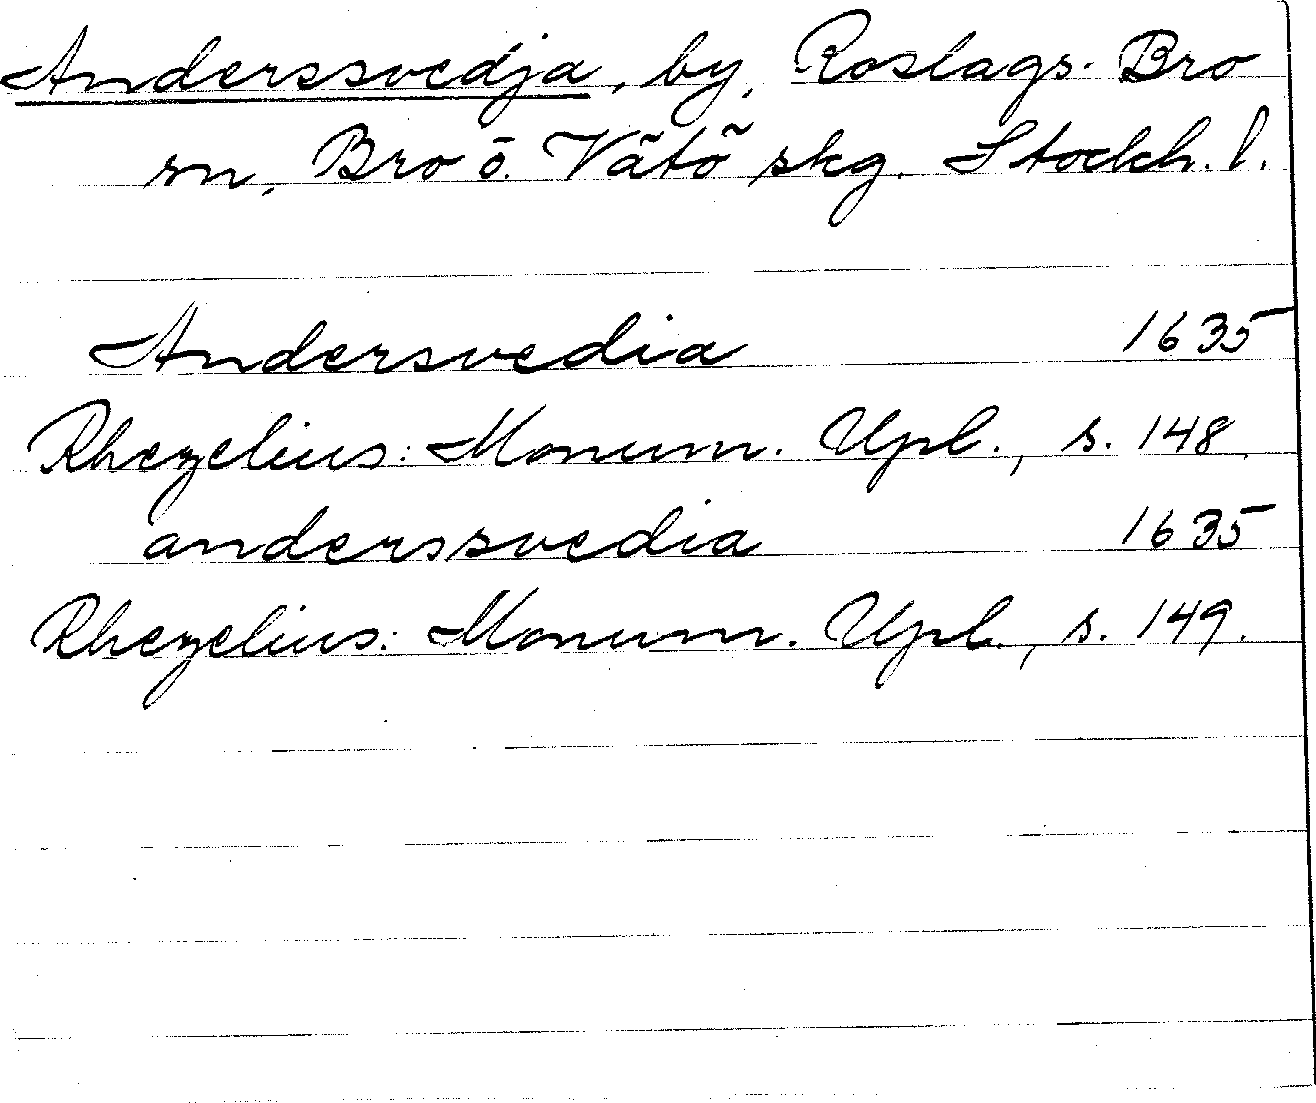 Anderssvedja, by, Roslags-Bro
sn, Bro o. Vätö skg. Stockh. l.
Andersvedia 1635
Rhezelius: Monum. Upl., s. 148.
anderssvedia 1635
Rhezelius: Monum. Upl., s. 149.